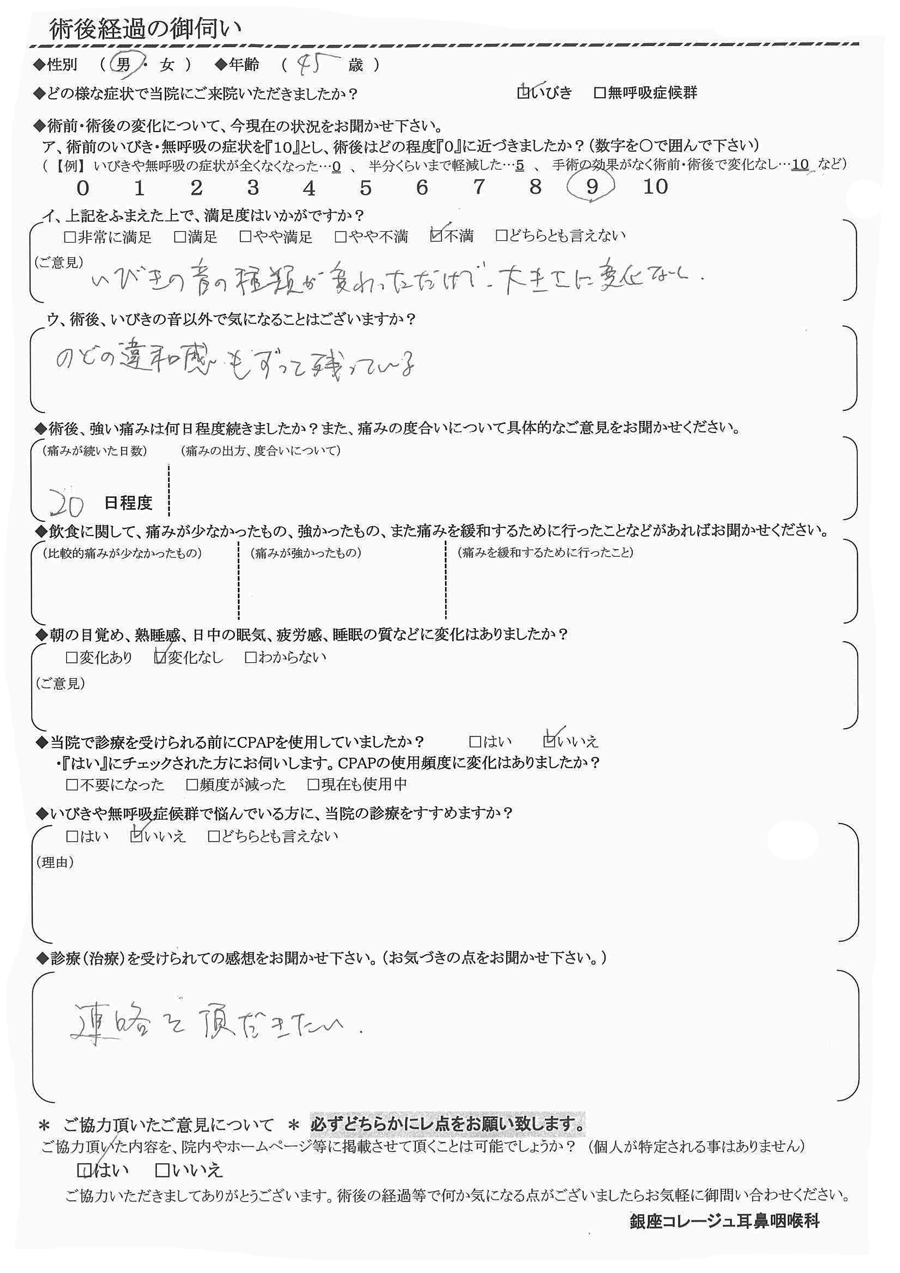 術後経過の御伺い
◆性別 （ 男 ・ 女 ） ◆年齢 （ 45 歳 ）
◆どの様な症状で当院にご来院いただきましたか？ ☑いびき □無呼吸症候群
◆術前・術後の変化について、今現在の状況をお聞かせ下さい。
ア、術前のいびき・無呼吸の症状を『10』とし、術後はどの程度『0』に近づきましたか？（数字を〇で囲んで下さい）
（【例】いびきや無呼吸の症状が全くなくなった…0 、 半分くらいまで軽減した…5 、 手術の効果がなく術前・術後で変化なし…10 など）
0 1 2 3 4 5 6 7 8 9 10
イ、上記をふまえた上で、満足度はいかがですか？
□非常に満足 □満足 □やや満足 □やや不満 ☑不満 □どちらとも言えない
（ご意見） いびきの音の種類が変わっただけで、大きさに変化なし.
ウ、術後、いびきの音以外で気になることはございますか？
のどの違和感もずって残っている
◆術後、強い痛みは何日程度続きましたか？また、痛みの度合いについて具体的なご意見をお聞かせください。
（痛みが続いた日数） （痛みの出方、度合いについて）
20 日程度
◆飲食に関して、痛みが少なかったもの、強かったもの、また痛みを緩和するために行ったことなどがあればお聞かせください。
（比較的痛みが少なかったもの） （痛みが強かったもの） （痛みを緩和するために行ったこと）
◆朝の目覚め、熟睡感、日中の眠気、疲労感、睡眠の質などに変化はありましたか？
□変化あり ☑変化なし □わからない
（ご意見）
◆当院で診療を受けられる前にCPAPを使用していましたか？ □はい ☑いいえ
・『はい』にチェックされた方にお伺いします。CPAPの使用頻度に変化はありましたか？
□不要になった □頻度が減った □現在も使用中
◆いびきや無呼吸症候群で悩んでいる方に、当院の診療をすすめますか？
□はい ☑いいえ □どちらとも言えない
（理由）
◆診療（治療）を受けられての感想をお聞かせ下さい。（お気づきの点をお聞かせ下さい。）
連絡を頂だきたい.
＊ ご協力頂いたご意見について ＊ 必ずどちらかにレ点をお願い致します。
ご協力頂いた内容を、院内やホームページ等に掲載させて頂くことは可能でしょうか？ （個人が特定される事はありません）
☑はい □いいえ
ご協力いただきましてありがとうございます。術後の経過等で何か気になる点がございましたらお気軽に御問い合わせください。
銀座コレージュ耳鼻咽喉科